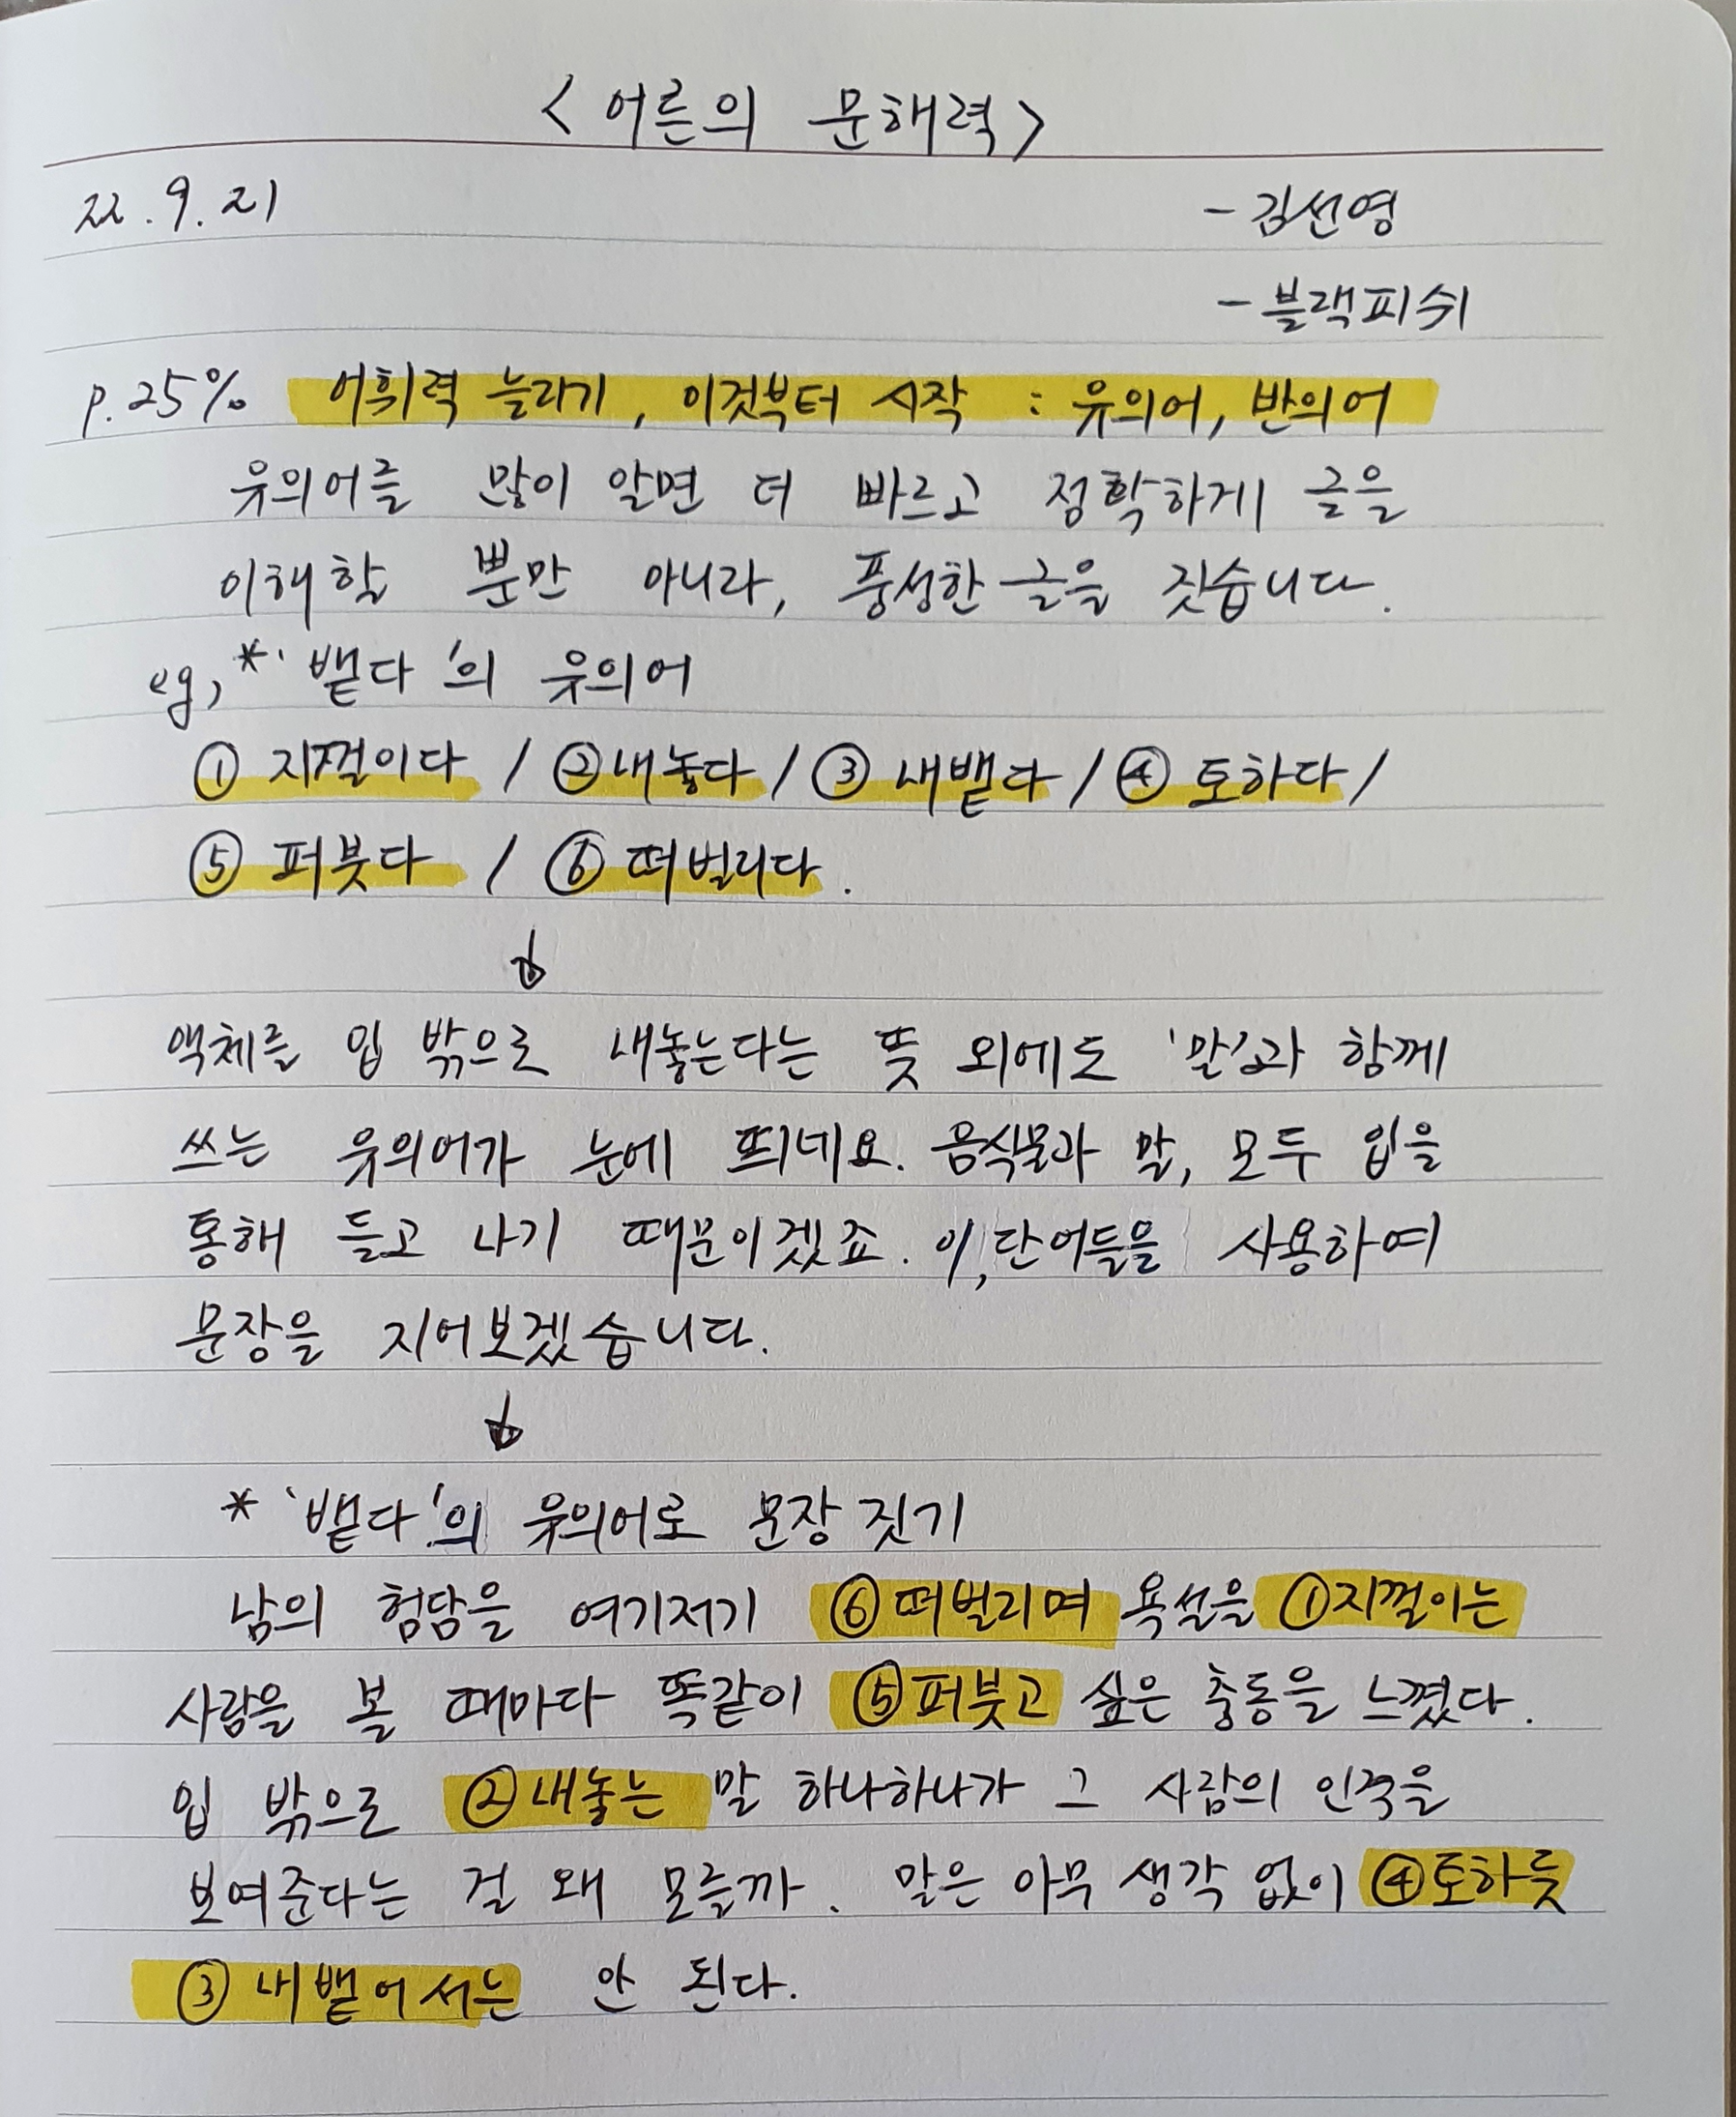 <어른의 문해력>
22.9.21 -김선영
-블랙피쉬
p.25% 어휘력 늘리기, 이것부터 시작 : 유의어, 반의어
유의어를 많이 알면 더 빠르고 정확하게 글을
이해할 뿐만 아니라, 풍성한 글을 짓습니다.
eg, *'뱉다'의 유의어
① 지껄이다 / ②내놓다 / ③ 내뱉다 / ④ 토하다 /
⑤ 퍼붓다 / ⑥ 떠벌리다.
↓
액체를 입 밖으로 내놓는다는 뜻 외에도 '말'과 함께
쓰는 유의어가 눈에 띄네요. 음식물과 말, 모두 입을
통해 들고 나기 때문이겠죠. 이 단어들을 사용하여
문장을 지어보겠습니다.
↓
* '뱉다'의 유의어로 문장 짓기
남의 험담을 여기저기 ⑥떠벌리며 욕설을 ①지껄이는
사람을 볼 때마다 똑같이 ⑤퍼붓고 싶은 충동을 느꼈다.
입 밖으로 ②내놓는 말 하나하나가 그 사람의 인격을
보여준다는 걸 왜 모를까. 말은 아무 생각 없이 ④토하듯
③ 내뱉어서는 안 된다.